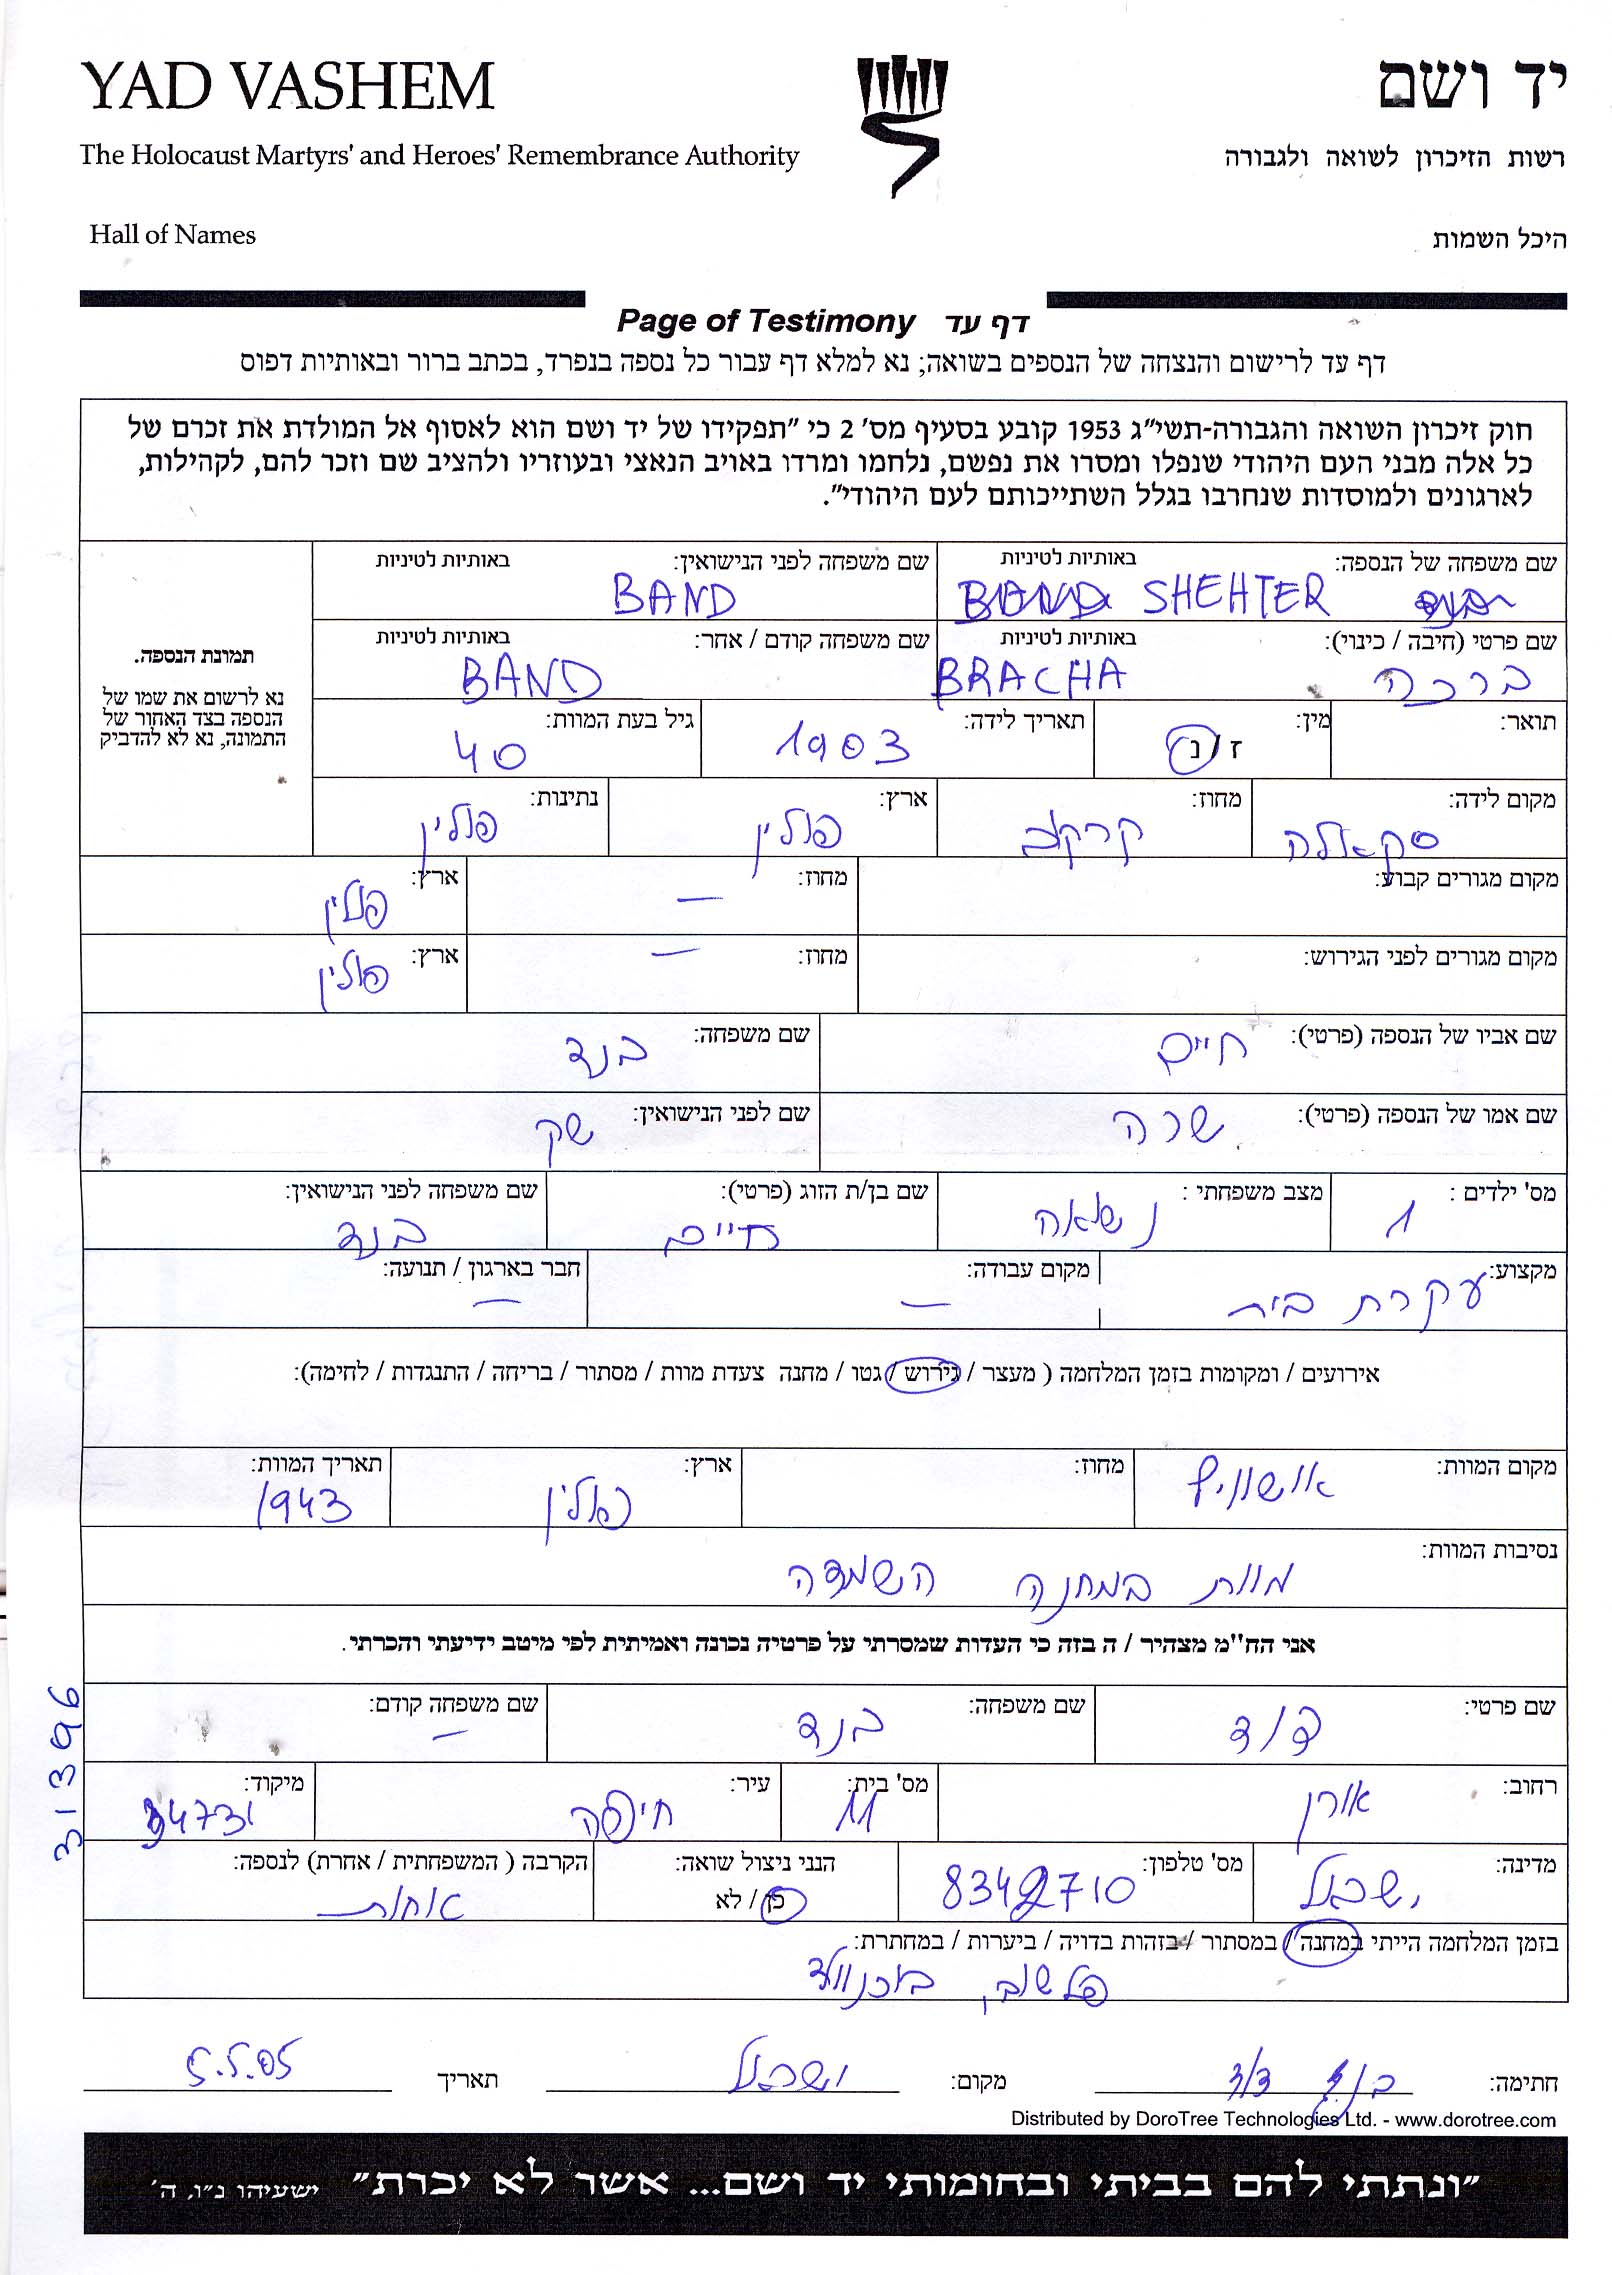 YAD VASHEM
יד ושם
The Holocaust Martyrs' and Heroes' Remembrance Authority
רשות הזיכרון לשואה ולגבורה
Hall of Names
היכל השמות
Page of Testimony דף עד
דף עד לרישום והנצחה של הנספים בשואה; נא למלא דף עבור כל נספה בנפרד, בכתב ברור ובאותיות דפוס
חוק זיכרון השואה והגבורה-תשי״ג 1953 קובע בסעיף מס׳ 2 כי ״תפקידו של יד ושם הוא לאסוף אל המולדת את זכרם של
כל אלה מבני העם היהודי שנפלו ומסרו את נפשם, נלחמו ומרדו באויב הנאצי ובעוזריו ולהציב שם וזכר להם, לקהילות,
לארגונים ולמוסדות שנחרבו בגלל השתייכותם לעם היהודי״.
שם משפחה של הנספה: באותיות לטיניות שם משפחה לפני הנישואין: באותיות לטיניות
SHEHTER BAND
שם פרטי (חיבה / כינוי): באותיות לטיניות שם משפחה קודם / אחר: באותיות לטיניות
ברכה BRACHA BAND
תמונת הנספה.
נא לרשום את שמו של
הנספה בצד האחור של
התמונה, נא לא להדביק
תואר: מין: תאריך לידה: גיל בעת המוות:
ז / נ 1903 40
מקום לידה: מחוז: ארץ: נתינות:
סקאלה קרקוב פולין פולין
מקום מגורים קבוע: מחוז: ארץ:
— פולין
מקום מגורים לפני הגירוש: מחוז: ארץ:
— פולין
שם אביו של הנספה (פרטי): שם משפחה:
חיים בנד
שם אמו של הנספה (פרטי): שם לפני הנישואין:
שרה שק
מס' ילדים : מצב משפחתי : שם בן/ת הזוג (פרטי): שם משפחה לפני הנישואין:
1 נשואה חיים בנד
מקצוע: מקום עבודה: חבר בארגון / תנועה:
עקרת בית — —
אירועים / ומקומות בזמן המלחמה ( מעצר / גירוש / גטו / מחנה צעדת מוות / מסתור / בריחה / התנגדות / לחימה):
מקום המוות: מחוז: ארץ: תאריך המוות:
אושוויץ פולין 1943
נסיבות המוות:
מוות במחנה השמדה
אני הח"מ מצהיר / ה בזה כי העדות שמסרתי על פרטיה נכונה ואמיתית לפי מיטב ידיעתי והכרתי.
שם פרטי: שם משפחה: שם משפחה קודם:
דוד בנד —
רחוב: מס' בית: עיר: מיקוד:
אורן 11 חיפה 34731
31396
מדינה: מס' טלפון: הנני ניצול שואה: הקרבה ( המשפחתית / אחרת) לנספה:
ישראל 8342710 כן / לא אחות
בזמן המלחמה הייתי במחנה / במסתור / בזהות בדויה / ביערות / במחתרת:
פלשוב, בוכנוולד
חתימה: בנד דוד מקום: ישראל תאריך 5.5.05
Distributed by DoroTree Technologies Ltd. - www.dorotree.com
״ונתתי להם בביתי ובחומותי יד ושם... אשר לא יכרת״ ישעיהו נ״ו, ה׳